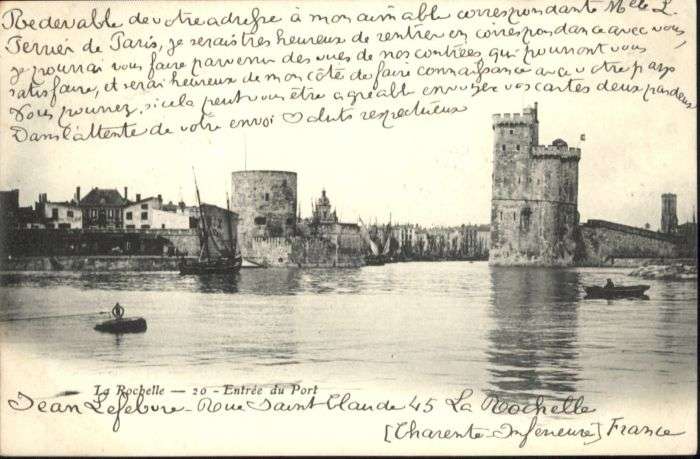 Redevable de votre adresse à mon aimable correspondante Melle L.
Terrier de Paris, je serais très heureux de rentrer en correspondance avec vous,
je pourrai vous faire parvenir des vues de nos contrées qui pourront vous
satisfaire, et serai heureux de mon côté de faire connaissance avec votre pays
Vous pourrez, si cela peut vous être agréable envoyer vos cartes deux par deux
Dans l'attente de votre envoi saluts respectueux
La Rochelle — 20 - Entrée du Port
Jean Lefebvre - Rue Saint Claude 45 La Rochelle
[Charente-Inférieure] France